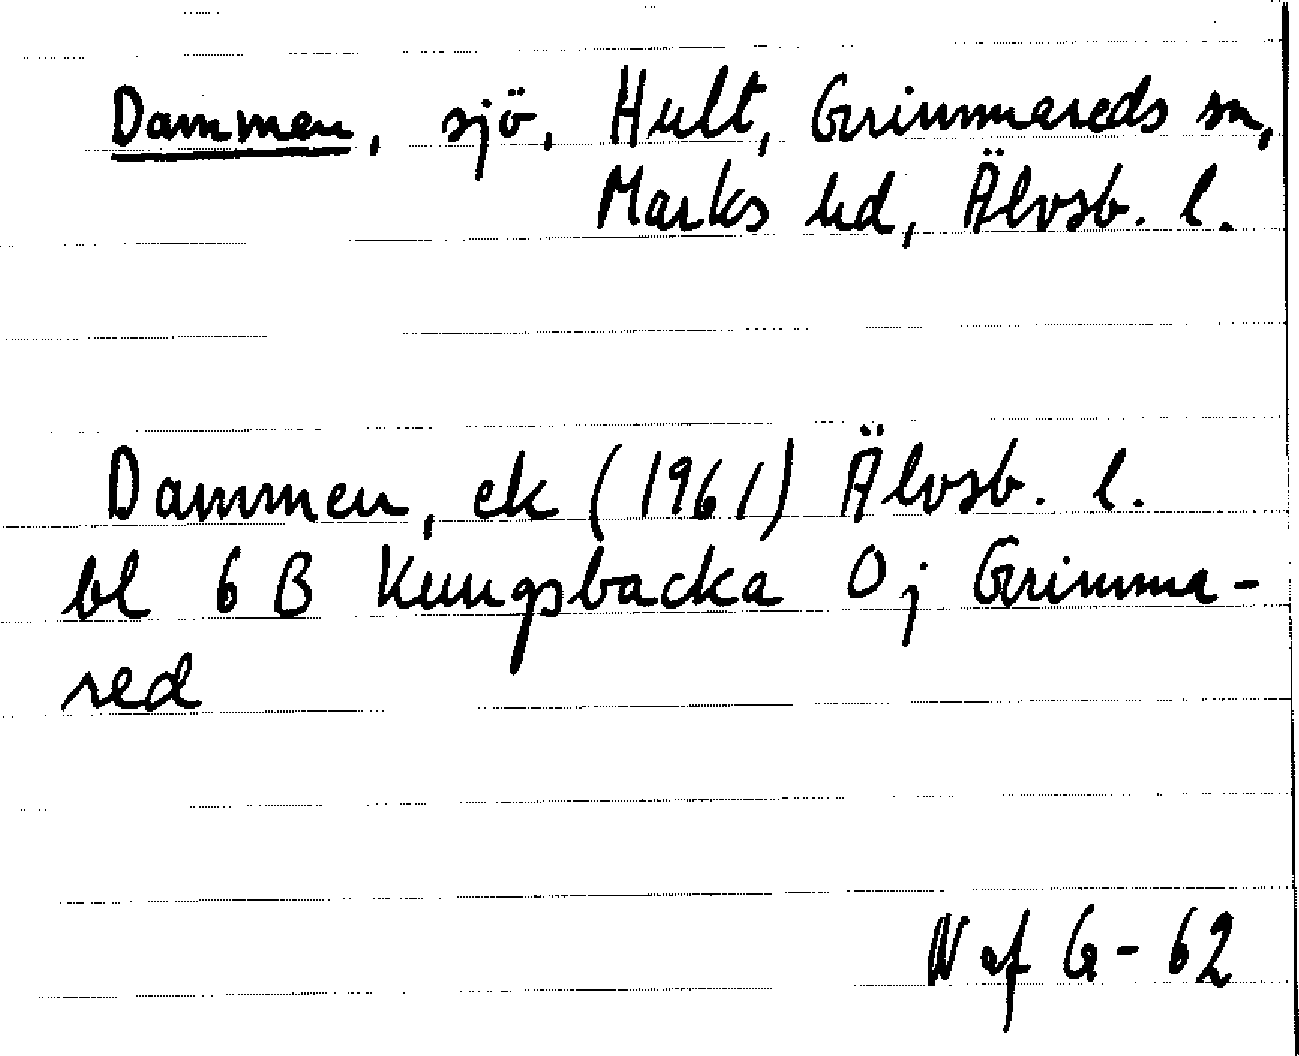 Dammen, sjö, Hult, Grimmareds sn,
Marks hd, Älvsb. l.
Dammen, ek (1961) Älvsb. l.
bl 6 B Kungsbacka 0j Grimma-
red
N af G - 62